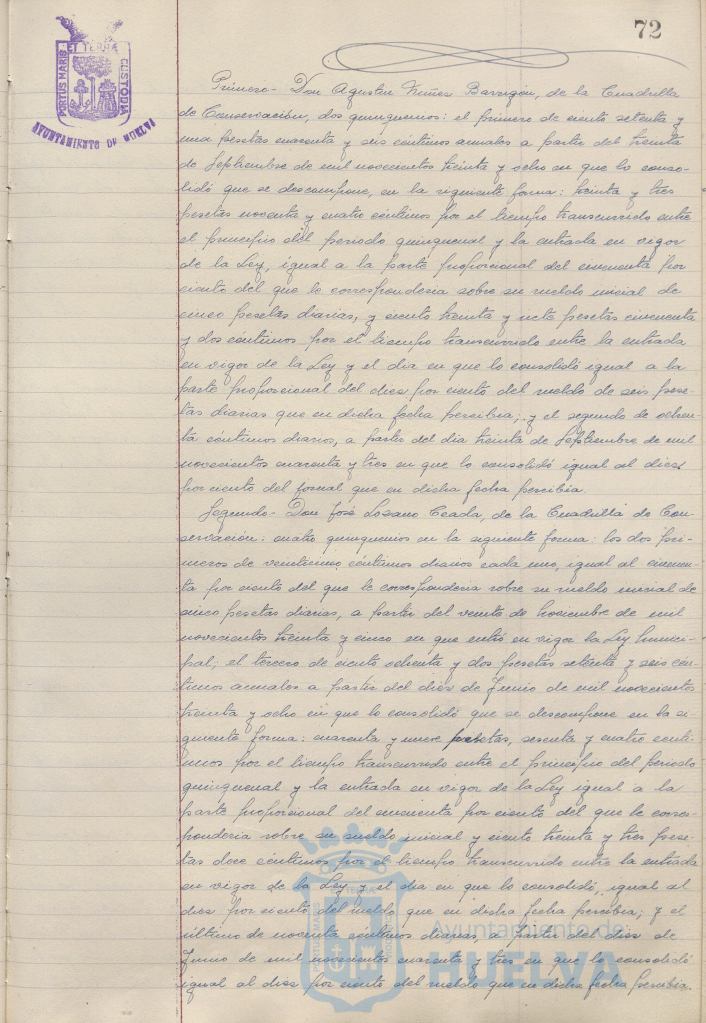 72
PORTUS MARIS ET TERRÆ CUSTODIA
AYUNTAMIENTO DE HUELVA
Primero- Don Agustín Núñez Barragán, de la Cuadrilla
de Conservación, dos quinquenios: el primero de ciento setenta y
una pesetas cuarenta y seis céntimos anuales a partir del treinta
de Septiembre de mil novecientos treinta y ocho en que lo conso-
lidó que se descompone, en la siguiente forma: treinta y tres
pesetas noventa y cuatro céntimos por el tiempo transcurrido entre
el principio del periodo quinquenal y la entrada en vigor
de la Ley, igual a la parte proporcional del cincuenta por
ciento del que le correspondería sobre su sueldo inicial de
cinco pesetas diarias, y ciento treinta y siete pesetas cincuenta
y dos céntimos por el tiempo transcurrido entre la entrada
en vigor de la Ley y el día en que lo consolidó igual a la
parte proporcional del diez por ciento del sueldo de seis pese-
tas diarias que en dicha fecha percibía; y el segundo de ochen-
ta céntimos diarios, a partir del día treinta de Septiembre de mil
novecientos cuarenta y tres en que lo consolidó igual al diez
por ciento del jornal que en dicha fecha percibía.
Segundo- Don José Lozano Ceada, de la Cuadrilla de Con-
servación: cuatro quinquenios en la siguiente forma: los dos pri-
meros de veinticinco céntimos diarios cada uno, igual al cincuen-
ta por ciento del que le correspondería sobre su sueldo inicial de
cinco pesetas diarias, a partir del veinte de Noviembre de mil
novecientos treinta y cinco en que entró en vigor la Ley Munici-
pal; el tercero de ciento ochenta y dos pesetas setenta y seis cén-
timos anuales a partir del diez de Junio de mil novecientos
treinta y ocho en que lo consolidó que se descompone en la si-
guiente forma: cuarenta y nueve pesetas, sesenta y cuatro cénti-
mos por el tiempo transcurrido entre el principio del periodo
quinquenal y la entrada en vigor de la Ley igual a la
parte proporcional del cincuenta por ciento del que le corres-
pondería sobre su sueldo inicial y ciento treinta y tres pese-
tas doce céntimos por el tiempo transcurrido entre la entrada
en vigor de la Ley y el día en que lo consolidó, igual al
diez por ciento del sueldo que en dicha fecha percibía; y el
último de noventa céntimos diarios, a partir del diez de
Junio de mil novecientos cuarenta y tres en que lo consolidó
igual al diez por ciento del sueldo que en dicha fecha percibía.
Ayuntamiento de
HUELVA